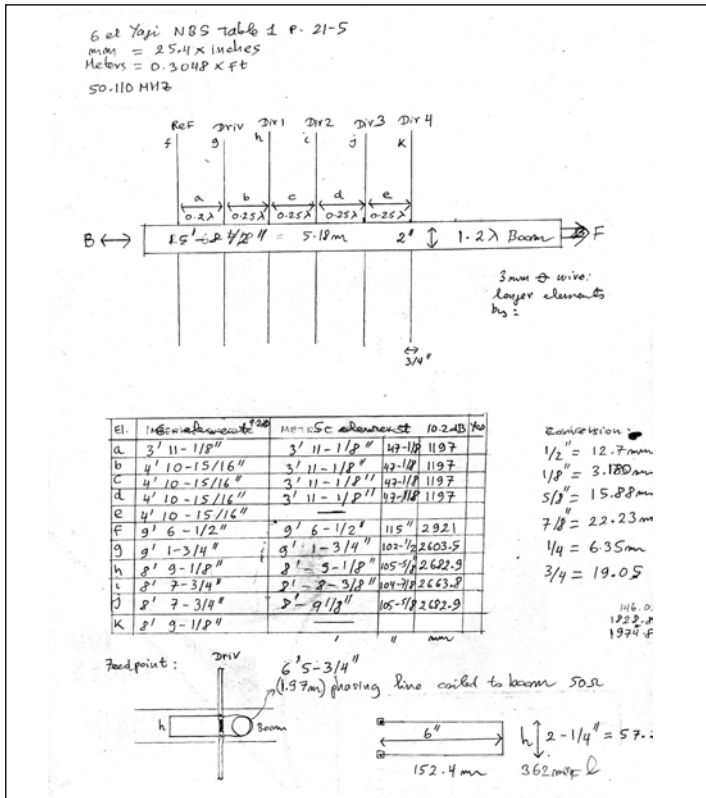 6 el Yagi NBS table 1 P. 21-5
mm = 25.4 x inches
Meters = 0.3048 x ft
50.110 MHZ
Ref Driv Dir1 Dir2 Dir3 Dir 4
f g h i j k
a b c d e
0.2λ 0.25λ 0.25λ 0.25λ 0.25λ
B = 5.18m 2" 1.2λ Boom F
3mm wire:
longer elements
by:
3/4"
El. 10.2dB
a 3' 11-1/8" 3' 11-1/8" 47-1/8 1197
b 4' 10-15/16" 3' 11-1/8" 47-1/8 1197
c 4' 10-15/16" 3' 11-1/8" 47-1/8 1197
d 4' 10-15/16" 3' 11-1/8" 47-1/8 1197
e 4' 10-15/16" —
f 9' 6-1/2" 9' 6-1/2" 115" 2921
g 9' 1-3/4" 9' 1-3/4" 102-1/2 2603.5
h 8' 9-1/8" 8'-9-1/8" 105-5/8 2682.9
i 8' 7-3/4" 8'-8-3/8" 104-7/8 2663.8
j 8' 7-3/4" 8'-9 1/8" 105-5/8 2682.9
k 8' 9-1/8" —
' " mm
Conversion:
1/2" = 12.7mm
1/8" = 3.180mm
5/8" = 15.88mm
7/8" = 22.23m
1/4 = 6.35mm
3/4 = 19.05
146.0
1828.8
1974.8
Feedpoint: Driv 6'5-3/4"
(1.97m) phasing line coiled to boom 50Ω
h Boom
6" h 2-1/4" = 57.
152.4 mm 362